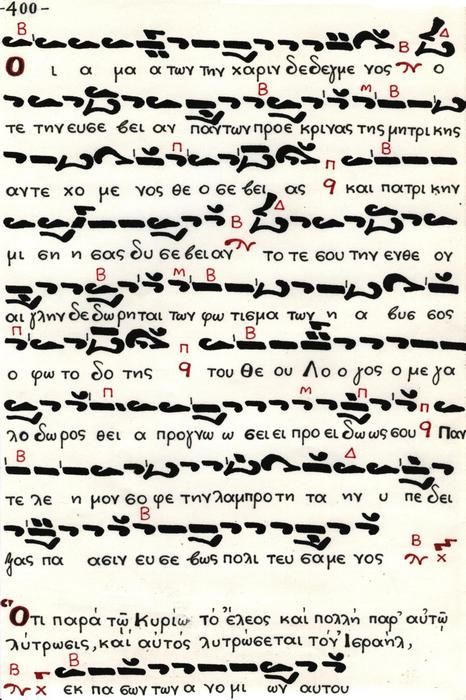 -400-
Ο ι α μα α των την χαριν δεδεγμε νος ο
τε την ευσε βει αν παντων προε κρινας της μητρι κης
αντε χο με νος θε ο σε βει ας q και πατρι κην
μι ση η σας δυ σε βειαν το τε σου την ενθε ον
αι γλην δε δω ρηται των φω τισμα των η α βυσ σος
ο φω το δο της q του Θε ου Λο ο γος ο με γα
λο δω ρος θει α προγνω ω σει ει προ ει δω ως σου q Παν
τε λε η μον σο φε την λαμπρο τη τα ην υ πε δει
ξας πα ασιν ευ σε βως πολι τευ σα με νος
Ὅτι παρὰ τῷ Κυρίῳ τὸ ἔλεος καὶ πολλὴ παρ' αὐτῷ
λύτρωσις, καὶ αὐτὸς λυτρώσεται τὸν Ἰσραὴλ,
εκ πα σων των α νο μι ων αυτου